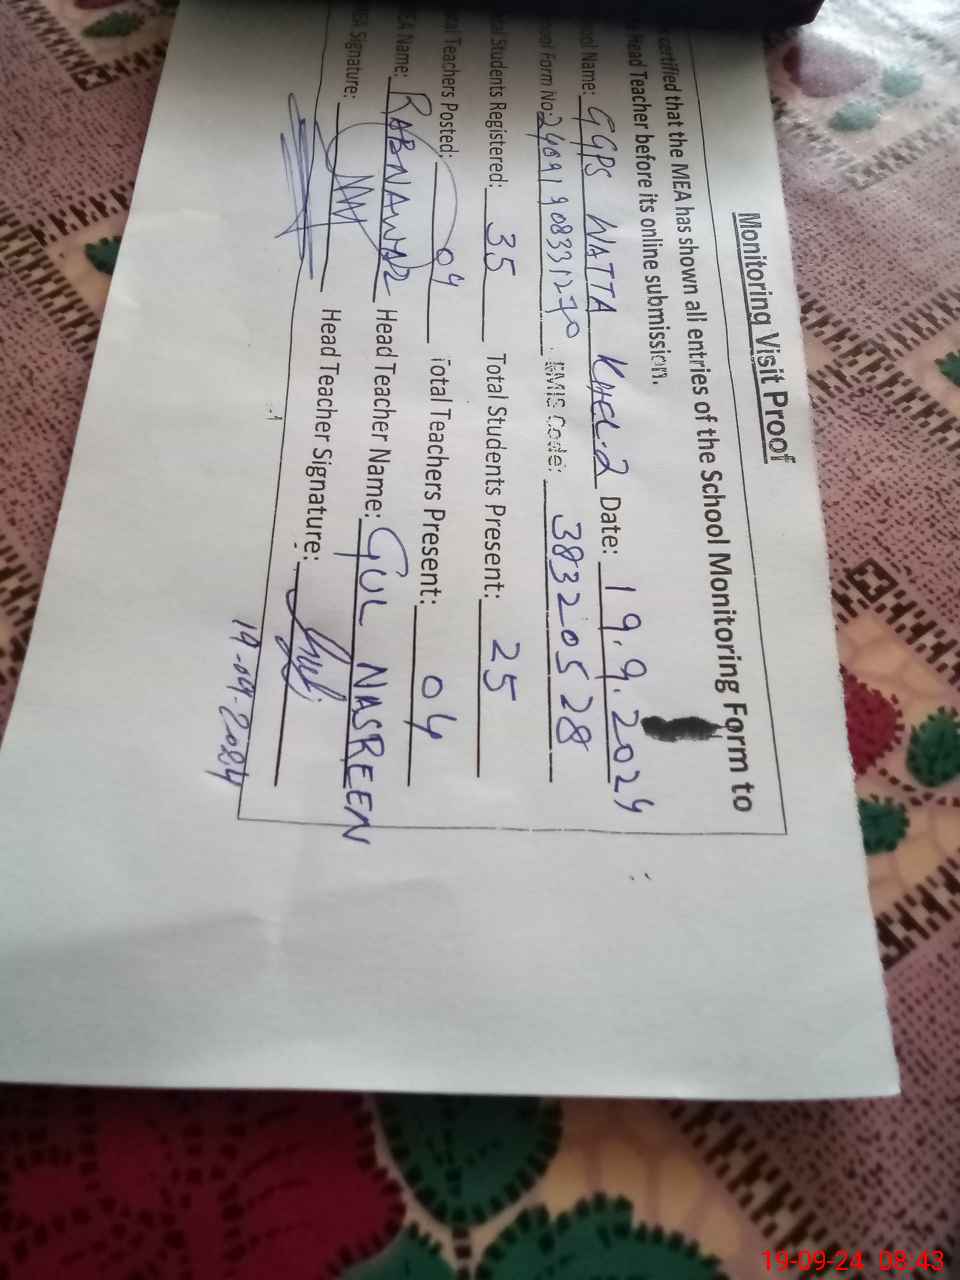 Monitoring Visit Proof
certified that the MEA has shown all entries of the School Monitoring Form to
Head Teacher before its online submission.
ool Name: GGPS WATTA KHEL.2 Date: 19.9.2024
ool Form No: EMIS Code: 383205 28
al Students Registered: 35 Total Students Present: 25
al Teachers Posted: 04 Total Teachers Present: 04
EA Name: RABNAWAZ Head Teacher Name: GUL NASREEN
EA Signature: Head Teacher Signature:
19-09-2024
19-09-24 08:43